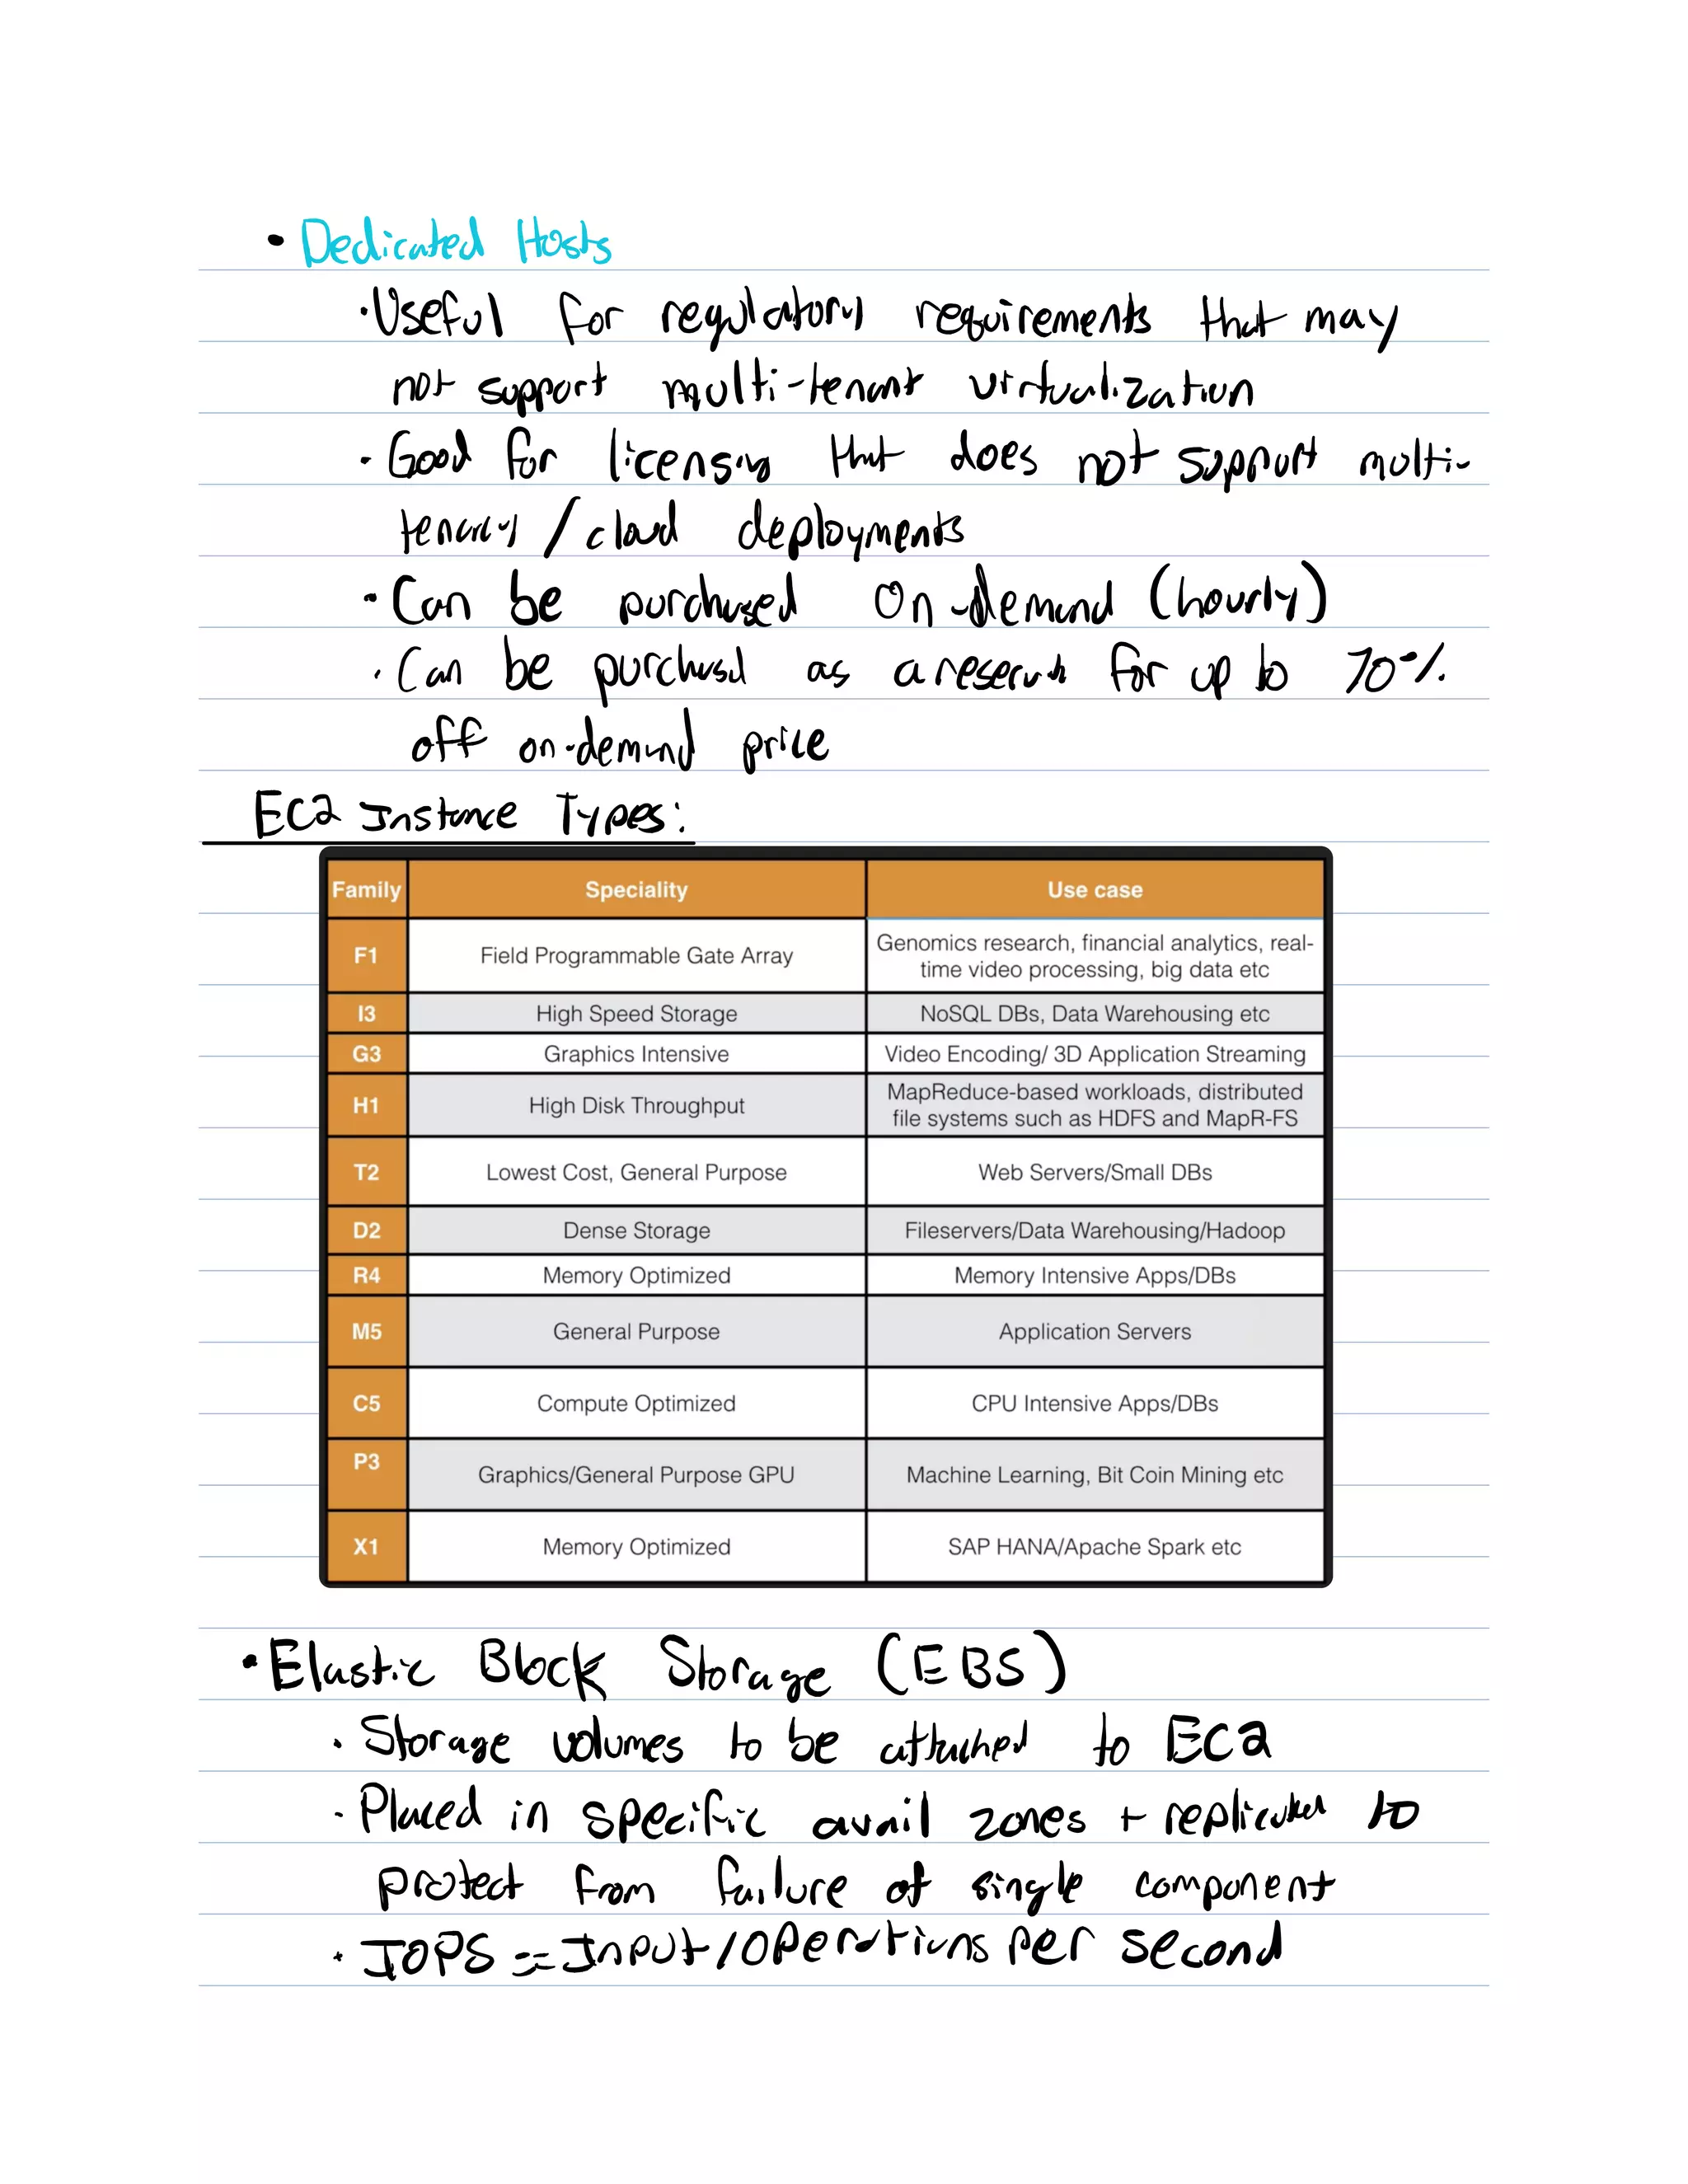 • Dedicated Hosts
• Useful for regulatory requirements that may
not support multi-tenant virtualization
• Good for licensing that does not support multi-
tenancy / cloud deployments
• Can be purchased On-demand (hourly)
• Can be purchased as a reserved for up to 70%
off on-demand price
EC2 Instance Types:
Family Speciality Use case
F1 Field Programmable Gate Array Genomics research, financial analytics, real-
time video processing, big data etc
I3 High Speed Storage NoSQL DBs, Data Warehousing etc
G3 Graphics Intensive Video Encoding/ 3D Application Streaming
H1 High Disk Throughput MapReduce-based workloads, distributed
file systems such as HDFS and MapR-FS
T2 Lowest Cost, General Purpose Web Servers/Small DBs
D2 Dense Storage Fileservers/Data Warehousing/Hadoop
R4 Memory Optimized Memory Intensive Apps/DBs
M5 General Purpose Application Servers
C5 Compute Optimized CPU Intensive Apps/DBs
P3 Graphics/General Purpose GPU Machine Learning, Bit Coin Mining etc
X1 Memory Optimized SAP HANA/Apache Spark etc
• Elastic Block Storage (EBS)
• Storage volumes to be attached to EC2
• Placed in specific avail zones + replicated to
protect from failure of single component
• IOPS == Input/Operations Per Second